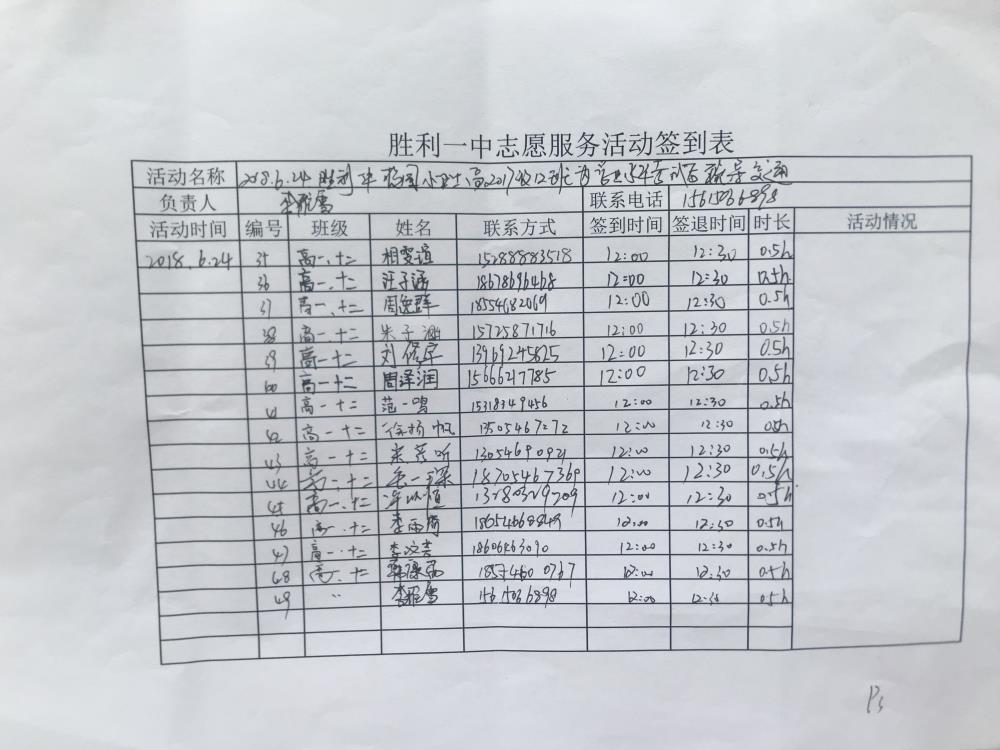 胜利一中志愿服务活动签到表
活动名称 2018.6.24 胜利 小卫士 高2017级12班 疏导交通
负责人 李雅雪 联系电话 15615066898
活动时间 编号 班级 姓名 联系方式 签到时间 签退时间 时长 活动情况
2018.6.24 35 高一、十二 相雯谊 15288883518 12:00 12:30 0.5h
36 高一、十二 汪子涵 18678696468 12:00 12:30 0.5h
37 高一、十二 周逸群 18554682069 12:00 12:30 0.5h
38 高一、十二 朱子涵 15725871716 12:00 12:30 0.5h
39 高一、十二 刘 13969245825 12:00 12:30 0.5h
40 高一、十二 周泽润 15666217785 12:00 12:30 0.5h
41 高一、十二 范一鸣 15318349456 12:00 12:30 0.5h
42 高一、十二 徐扬帆 13505467272 12:00 12:30 0.5h
43 高一、十二 13054690921 12:00 12:30 0.5h
44 高一、十二 18705467369 12:00 12:30 0.5h
45 高一、十二 12:00 12:30 0.5h
46 高一、十二 李雨 12:00 12:30 0.5h
47 高一、十二 李 12:00 12:30 0.5h
48 高一、十二 12:00 12:30 0.5h
49 〃 李雅雪 15615066898 12:00 12:30 0.5h
P3